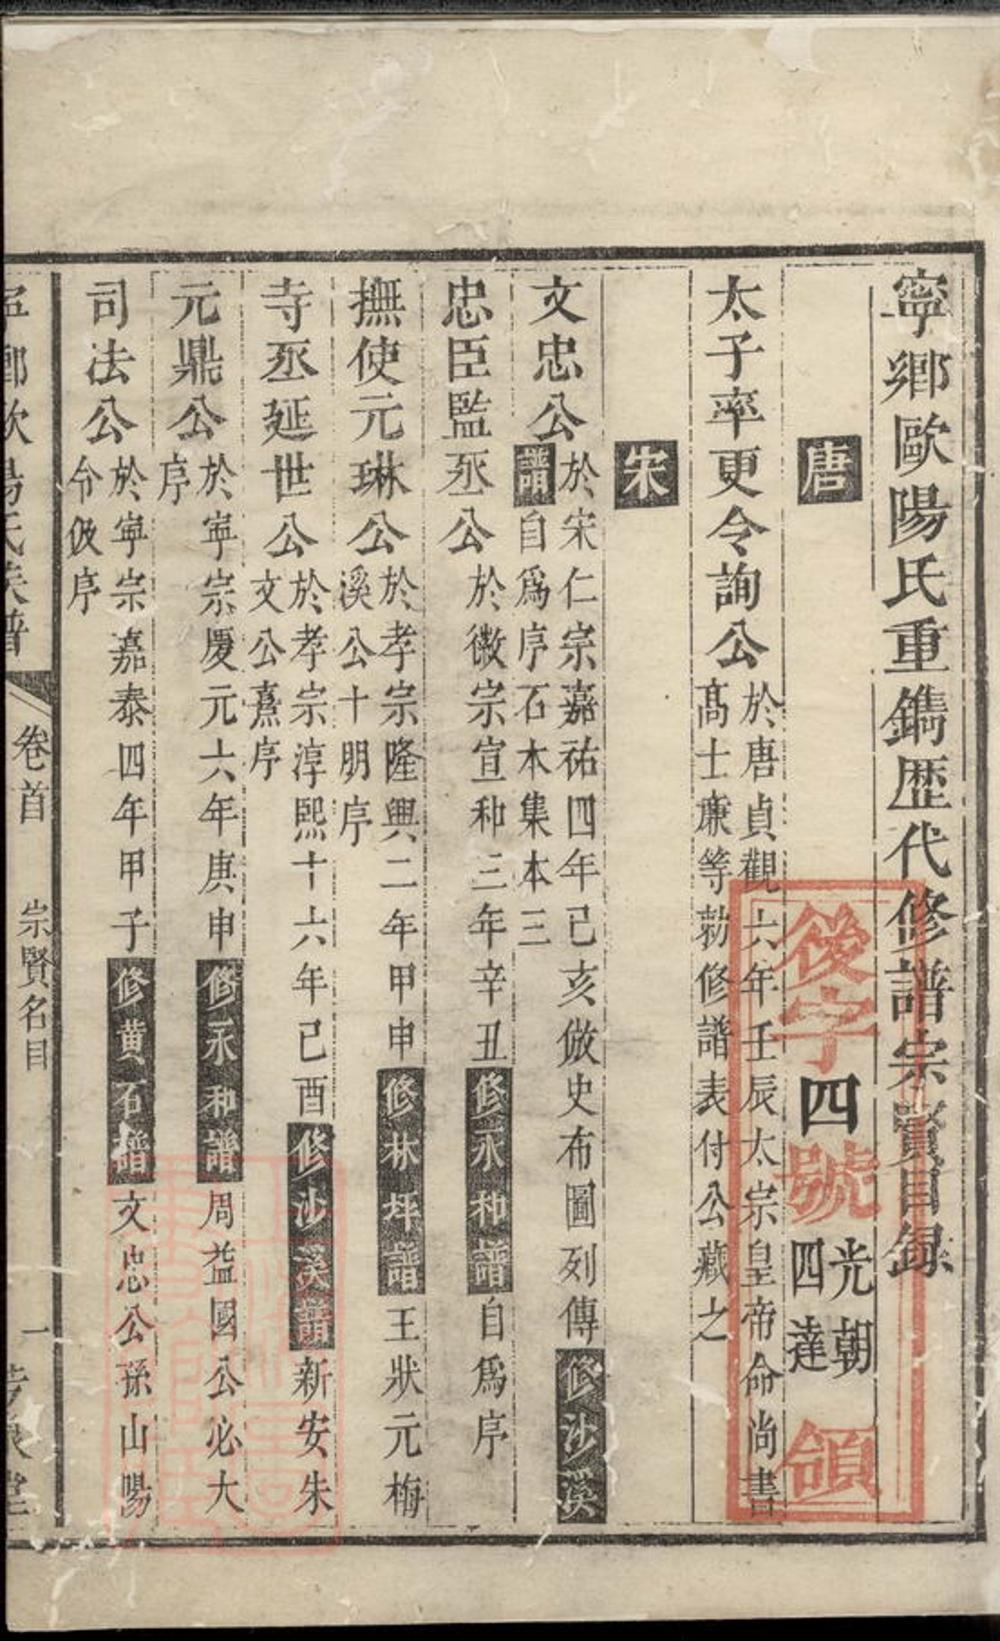 寧鄉歐陽氏重鐫歷代修譜宗賢目錄
唐
後字四號光朝四達領
太子率更令詢公於唐貞觀六年壬辰太宗皇帝命尚書
高士廉等勅修譜表付公藏之
宋
文忠公於宋仁宗嘉祐四年己亥倣史布圖列傳修沙溪
譜自爲序石本集本三
忠臣監丞公於徽宗宣和三年辛丑修永和譜自爲序
撫使元琳公於孝宗隆興二年甲申修林坪譜王狀元梅
溪公十朋序
寺丞延世公於孝宗淳熙十六年己酉修沙溪譜新安朱
文公熹序
元鼎公於寧宗慶元六年庚申修永和譜周益國公必大
序
司法公於寧宗嘉泰四年甲子修黄石譜文忠公孫山陽
令伋序
寧鄉歐陽氏族譜 卷首 宗賢名目 一